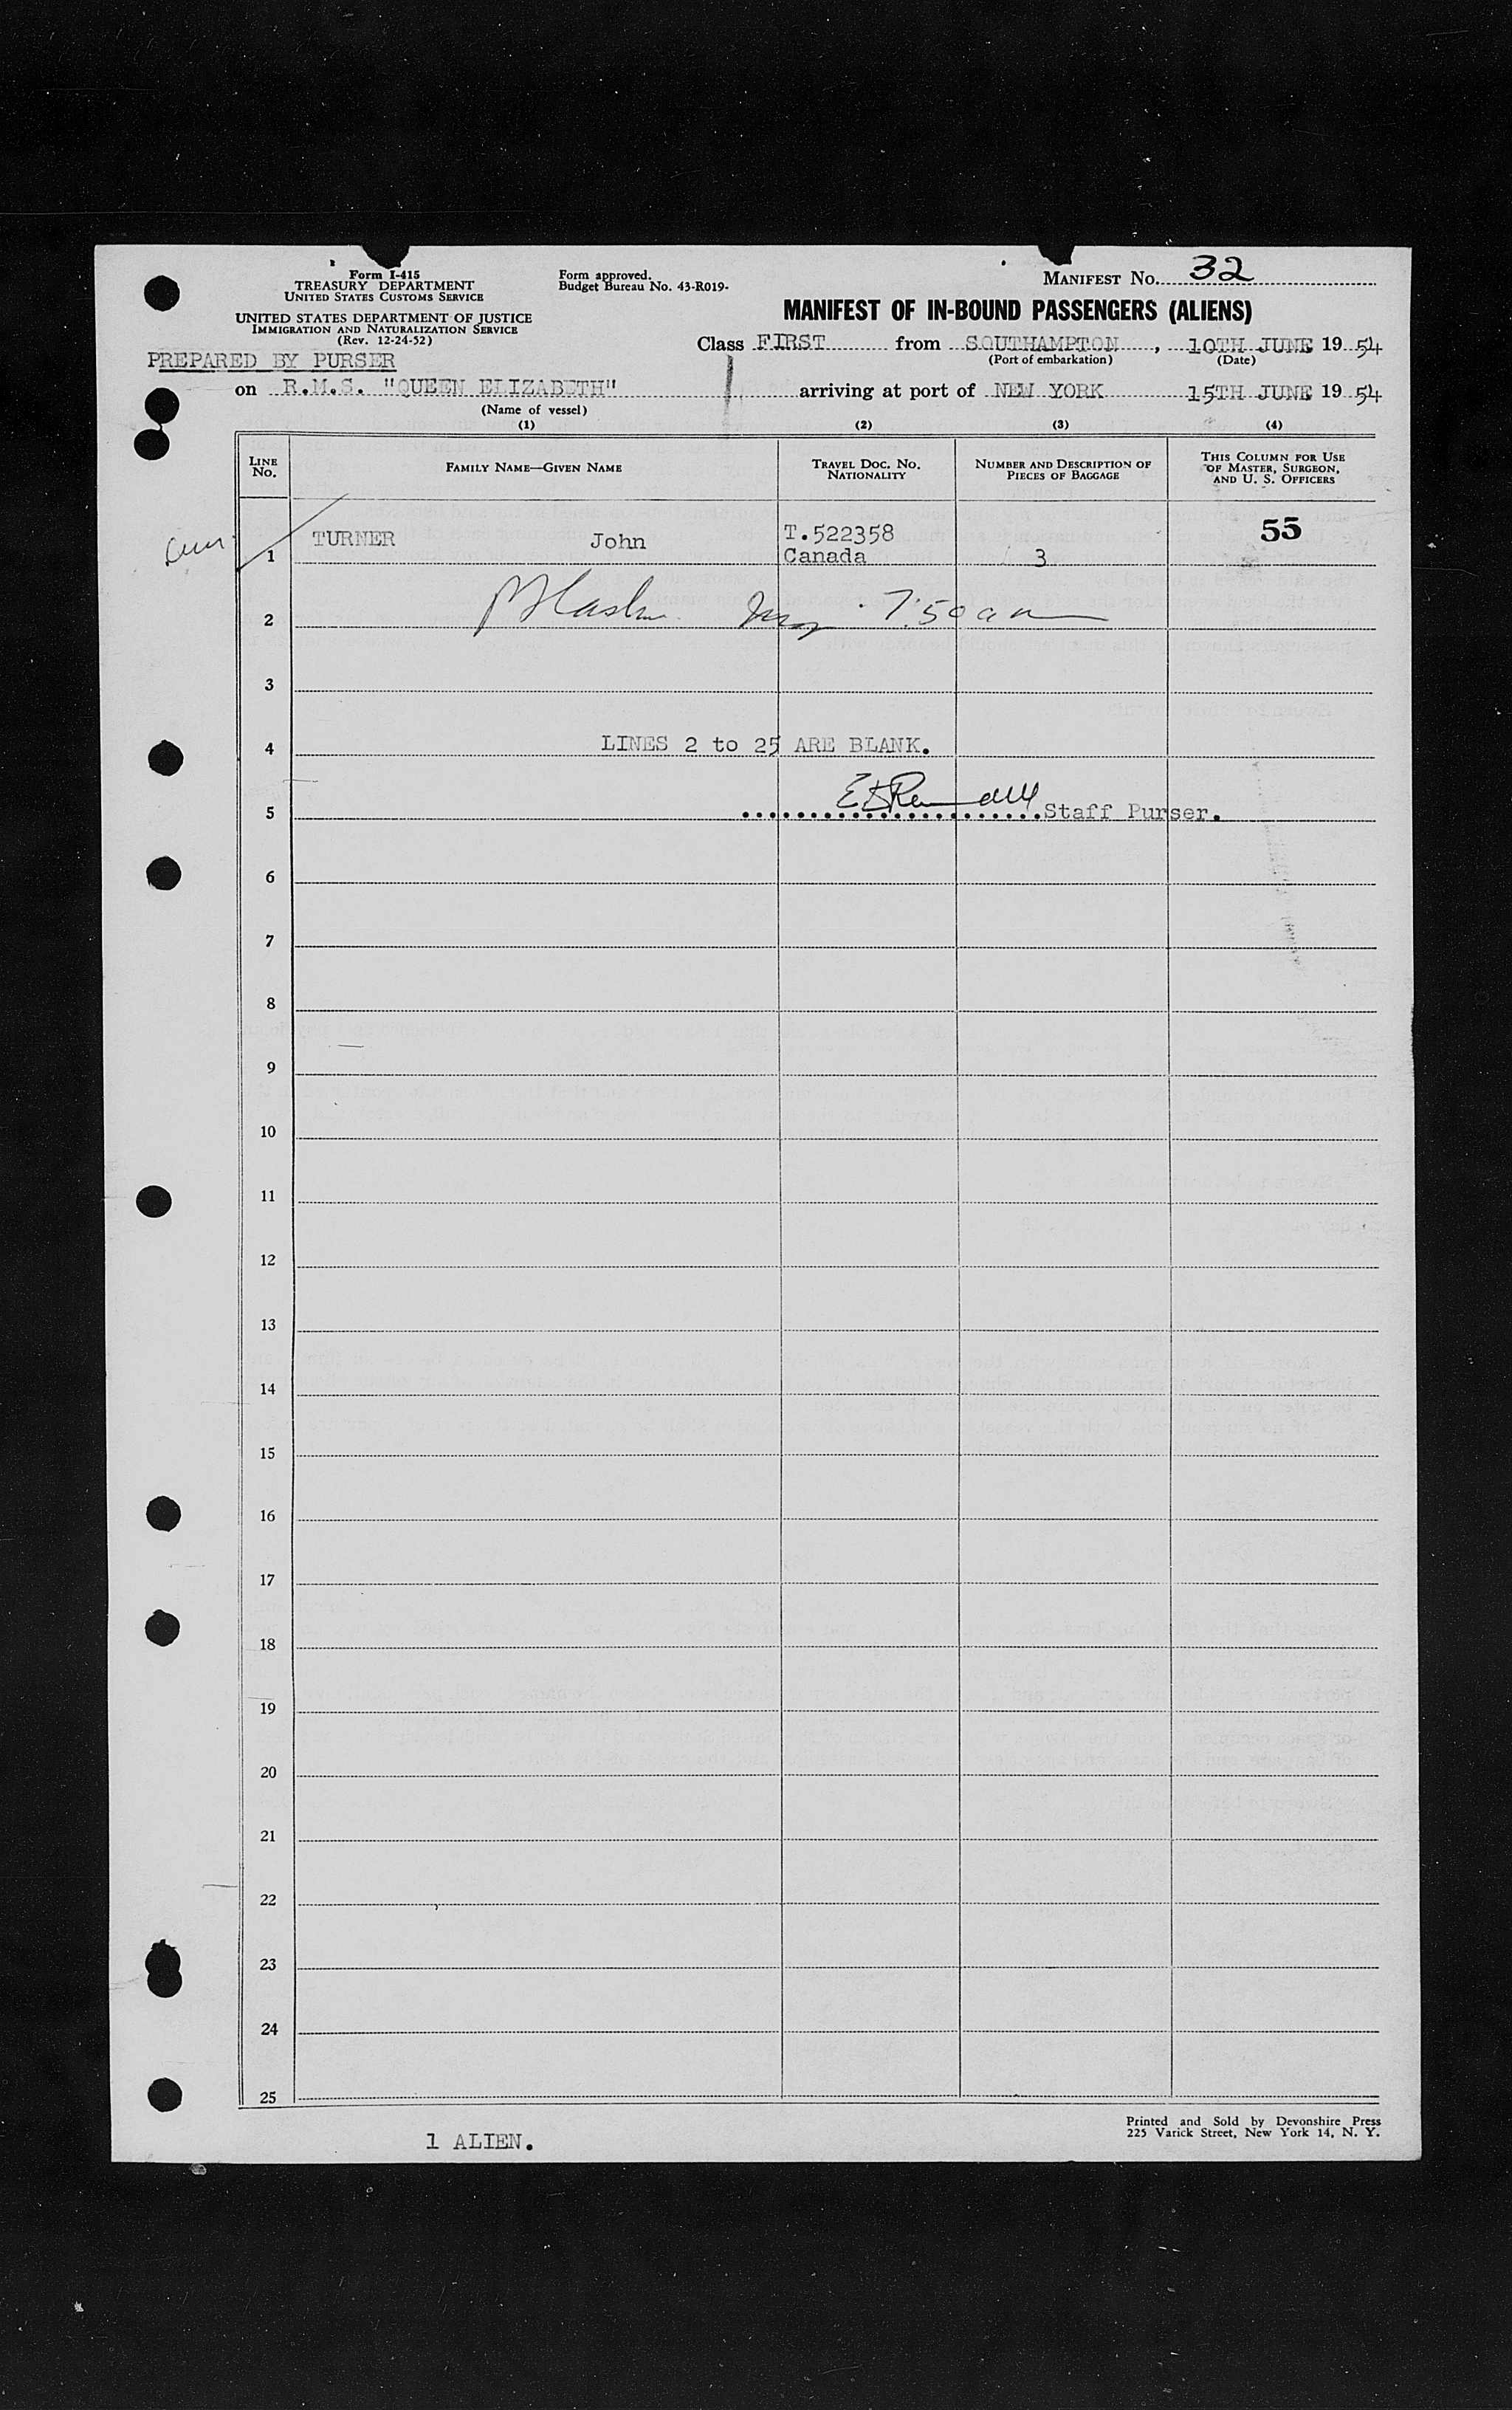 Form I-415
TREASURY DEPARTMENT
UNITED STATES CUSTOMS SERVICE
UNITED STATES DEPARTMENT OF JUSTICE
IMMIGRATION AND NATURALIZATION SERVICE
(Rev. 12-24-52)
Form approved.
Budget Bureau No. 43-R019-
MANIFEST No. 32
MANIFEST OF IN-BOUND PASSENGERS (ALIENS)
Class FIRST from SOUTHAMPTON, 10TH JUNE 19 54
(Port of embarkation) (Date)
PREPARED BY PURSER
on R.M.S. "QUEEN ELIZABETH" arriving at port of NEW YORK 15TH JUNE 19 54
(Name of vessel)
(1) (2) (3) (4)
LINE No. FAMILY NAME—GIVEN NAME TRAVEL DOC. No. NATIONALITY NUMBER AND DESCRIPTION OF PIECES OF BAGGAGE THIS COLUMN FOR USE OF MASTER, SURGEON, AND U. S. OFFICERS
1 TURNER John T.522358 Canada 3 55
2 7:50 am
3
4 LINES 2 to 25 ARE BLANK.
5 Staff Purser.
6
7
8
9
10
11
12
13
14
15
16
17
18
19
20
21
22
23
24
25
1 ALIEN.
Printed and Sold by Devonshire Press
225 Varick Street, New York 14, N. Y.